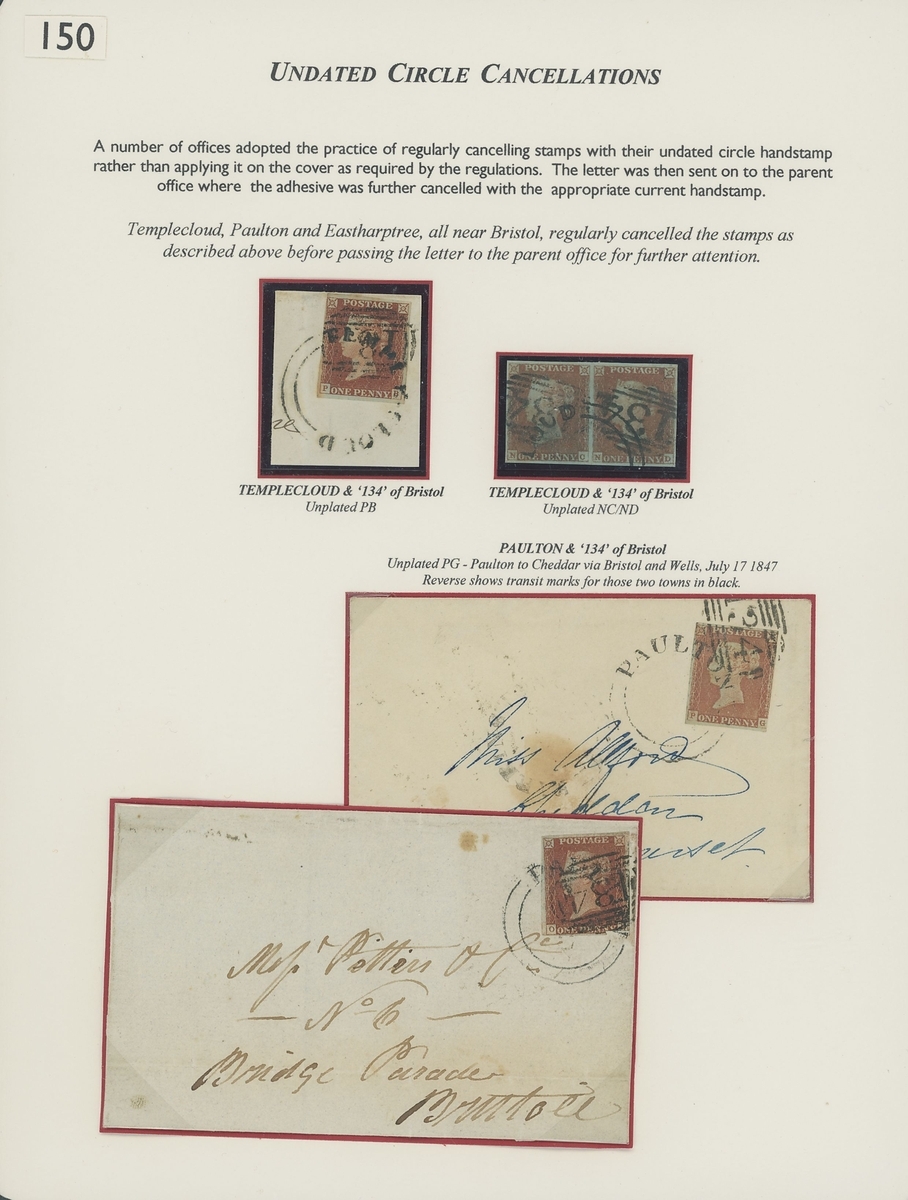 150
UNDATED CIRCLE CANCELLATIONS
A number of offices adopted the practice of regularly cancelling stamps with their undated circle handstamp
rather than applying it on the cover as required by the regulations. The letter was then sent on to the parent
office where the adhesive was further cancelled with the appropriate current handstamp.
Templecloud, Paulton and Eastharptree, all near Bristol, regularly cancelled the stamps as
described above before passing the letter to the parent office for further attention.
POSTAGE
P ONE PENNY B
CLOUD
TEMPLECLOUD & ‘134’ of Bristol
Unplated PB
POSTAGE POSTAGE
N ONE PENNY C N ONE PENNY D
134
TEMPLECLOUD & ‘134’ of Bristol
Unplated NC/ND
PAULTON & ‘134’ of Bristol
Unplated PG - Paulton to Cheddar via Bristol and Wells, July 17 1847
Reverse shows transit marks for those two towns in black.
PAULT
POSTAGE
P ONE PENNY G
Miss
POSTAGE
134
ONE PENNY
No 6
Bridge Parade